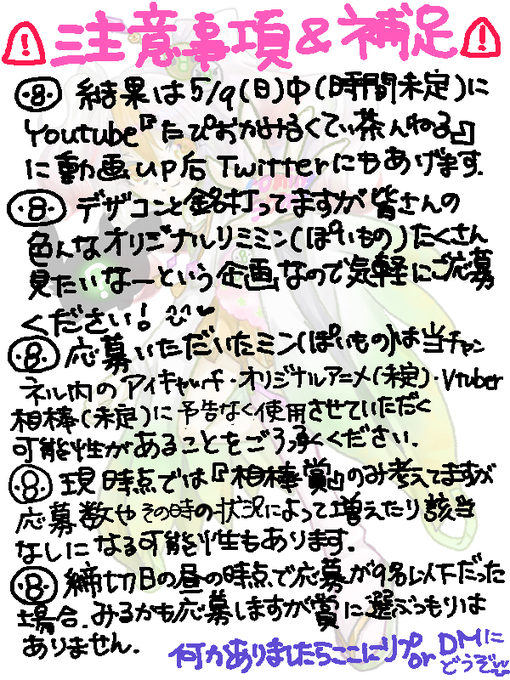 注意事項&補足
結果は5/9(日)中(時間未定)に
Youtube『たぴおかみるくてぃ茶んねる』
に動画UP后Twitterにもあげます.
デザコンと銘打ってますが皆さんの
色んなオリジナルリミミン(ぽいもの)たくさん
見たいなーという企画なので気軽にご応募
ください!
応募いただいたミン(ぽいもの)は当チャン
ネル内のアイキャッチ・オリジナルアニメ(未定)・Vtuber
相棒(未定)に予告なく使用させていただく
可能性があることをご了承ください.
現時点では『相棒賞』のみ考えてますが
応募数やその時の状況によって増えたり該当
なしになる可能性もあります.
締切日の昼の時点で応募が9名以下だった
場合、みるかも応募しますが賞に選ぶつもりは
ありません.
何かありましたらここにリプor DMに
どうぞ